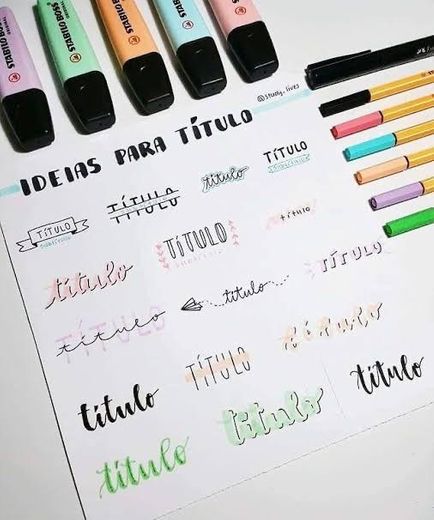 STABILO BOSS
STABILO BOSS
STABILO BOSS
STABILO BOSS
STABILO BOSS
@study.lives
IDEIAS PARA TÍTULO
TÍTULO
TÍTULO
título
TÍTULO
subtítulo
título
TÍTULO
título
título
título
TÍTULO
título
TÍTULO
título
título
título
título
título